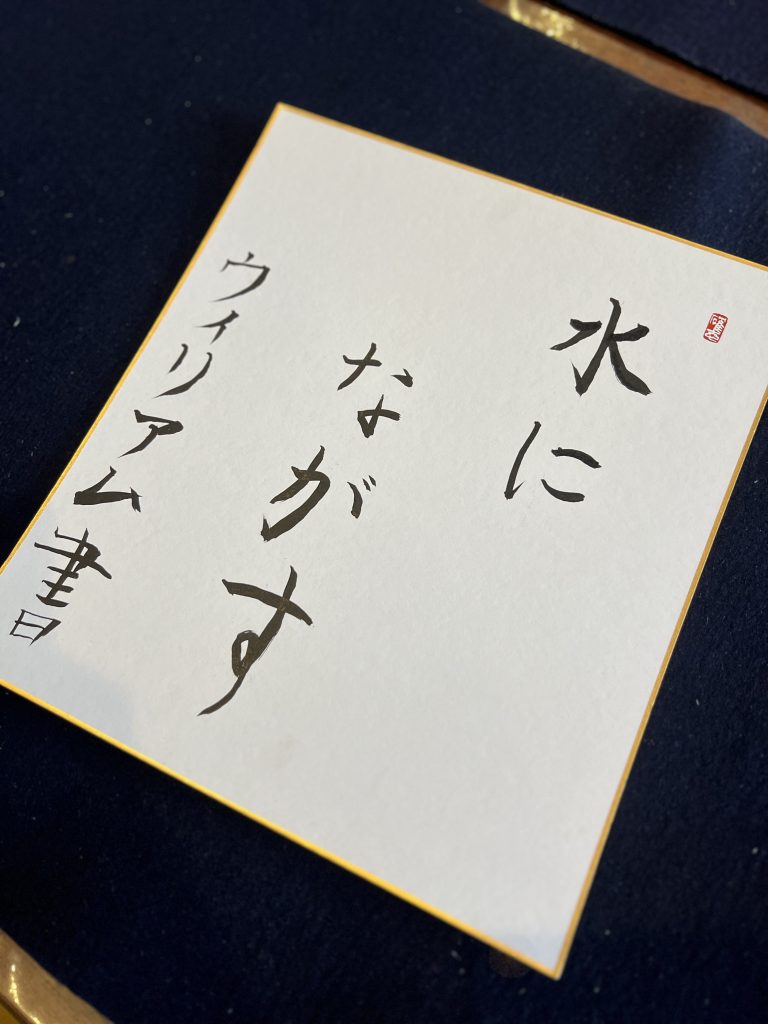 水に
ながす
ウィリアム書